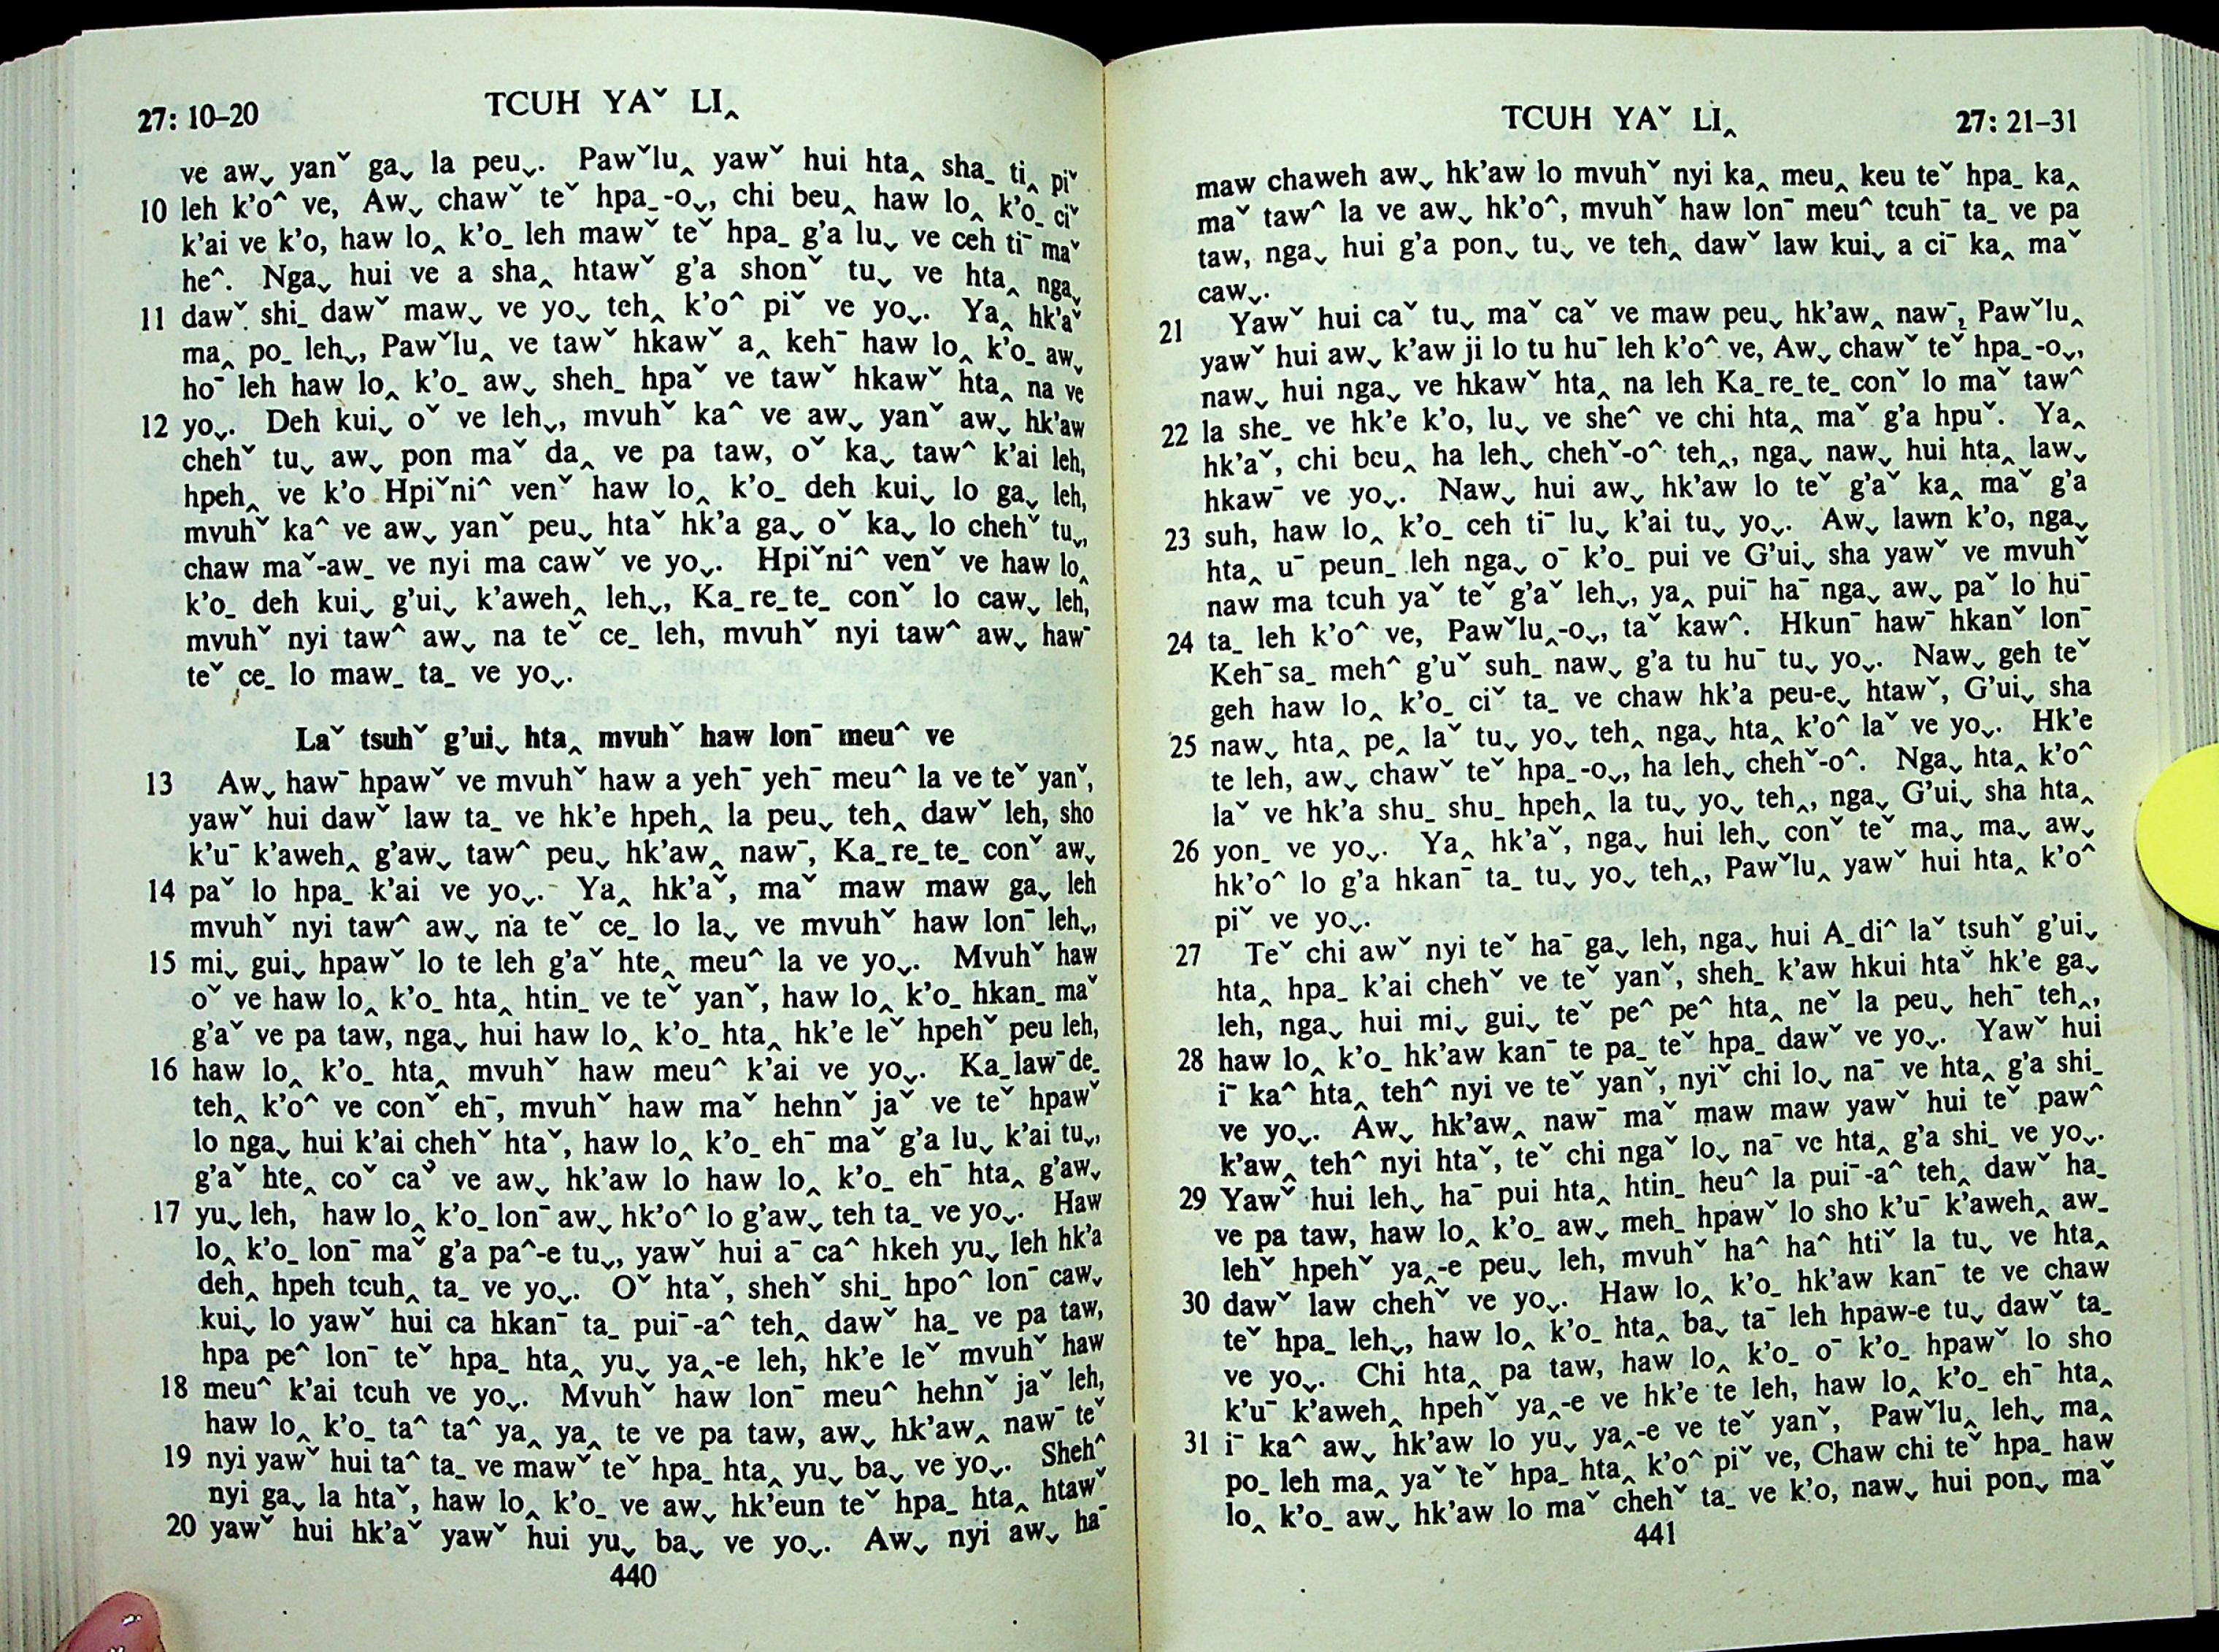 27: 10–20
TCUH YAˇ LI‸
ve aw⌄ yanˇ ga⌄ la peu⌄. Pawˇlu‸ yawˇ hui hta‸ sha_ ti‸ piˇ
10 leh k'o^ ve, Aw⌄ chawˇ teˇ hpa_-o⌄, chi beu‸ haw lo‸ k'o_ ciˇ
k'ai ve k'o, haw lo‸ k'o_ leh mawˇ teˇ hpa_ g'a lu⌄ ve ceh tiˉ maˇ
he^. Nga⌄ hui ve a sha‸ htawˇ g'a shonˇ tu⌄ ve hta‸ nga⌄
11 dawˇ shi_ dawˇ maw⌄ ve yo⌄ teh‸ k'o^ piˇ ve yo⌄. Ya‸ hk'aˇ
ma‸ po_ leh⌄, Pawˇlu‸ ve tawˇ hkawˇ a‸ kehˉ haw lo‸ k'o_ aw⌄
hoˉ leh haw lo‸ k'o_ aw⌄ sheh_ hpaˇ ve tawˇ hkawˇ hta‸ na ve
12 yo⌄. Deh kui⌄ oˇ ve leh⌄, mvuhˇ ka^ ve aw⌄ yanˇ aw⌄ hk'aw
chehˇ tu⌄ aw⌄ pon maˇ da‸ ve pa taw, oˇ ka⌄ taw^ k'ai leh,
hpeh‸ ve k'o Hpiˇni^ venˇ haw lo‸ k'o_ deh kui⌄ lo ga⌄ leh,
mvuhˇ ka^ ve aw⌄ yanˇ peu⌄ htaˇ hk'a ga⌄ oˇ ka⌄ lo chehˇ tu⌄,
chaw maˇ-aw_ ve nyi ma cawˇ ve yo⌄. Hpiˇni^ venˇ ve haw lo‸
k'o_ deh kui⌄ g'ui⌄ k'aweh‸ leh⌄, Ka_re_te_ conˇ lo caw⌄ leh,
mvuhˇ nyi taw^ aw⌄ na teˇ ce_ leh, mvuhˇ nyi taw^ aw⌄ hawˉ
teˇ ce_ lo maw_ ta_ ve yo⌄.
Laˇ tsuhˇ g'ui⌄ hta‸ mvuhˇ haw lonˉ meu^ ve
13 Aw⌄ hawˉ hpawˇ ve mvuhˇ haw a yehˉ yehˉ meu^ la ve teˇ yanˇ,
yawˇ hui dawˇ law ta_ ve hk'e hpeh‸ la peu⌄ teh‸ dawˇ leh, sho
k'uˉ k'aweh‸ g'aw⌄ taw^ peu⌄ hk'aw‸ nawˉ, Ka_re_te_ conˇ aw⌄
14 paˇ lo hpa_ k'ai ve yo⌄. Ya‸ hk'aˇ, maˇ maw maw ga⌄ leh
mvuhˇ nyi taw^ aw⌄ na teˇ ce_ lo la⌄ ve mvuhˇ haw lonˉ leh⌄,
15 mi⌄ gui⌄ hpawˇ lo te leh g'aˇ hte‸ meu^ la ve yo⌄. Mvuhˇ haw
oˇ ve haw lo‸ k'o_ hta‸ htin_ ve teˇ yanˇ, haw lo‸ k'o_ hkan_ maˇ
g'aˇ ve pa taw, nga⌄ hui haw lo‸ k'o_ hta‸ hk'e leˇ hpehˇ peu leh,
16 haw lo‸ k'o_ hta‸ mvuhˇ haw meu^ k'ai ve yo⌄. Ka_lawˉde_
teh‸ k'o^ ve conˇ ehˉ, mvuhˇ haw maˇ hehnˇ jaˇ ve teˇ hpawˇ
lo nga⌄ hui k'ai chehˇ htaˇ, haw lo‸ k'o_ ehˉ maˇ g'a lu⌄ k'ai tu⌄,
g'aˇ hte‸ coˇ caˇ ve aw⌄ hk'aw lo haw lo‸ k'o_ ehˉ hta‸ g'aw⌄
17 yu⌄ leh, haw lo‸ k'o_ lonˉ aw⌄ hk'o^ lo g'aw⌄ teh ta_ ve yo⌄. Haw
lo‸ k'o_ lonˉ maˇ g'a pa^-e tu⌄, yawˇ hui aˉ ca^ hkeh yu⌄ leh hk'a
deh‸ hpeh tcuh‸ ta_ ve yo⌄. Oˇ htaˇ, shehˇ shi_ hpo^ lonˉ caw⌄
kui⌄ lo yawˇ hui ca hkanˉ ta_ puiˉ-a^ teh‸ dawˇ ha_ ve pa taw,
hpa pe^ lonˉ teˇ hpa_ hta‸ yu⌄ ya‸-e leh, hk'e leˇ mvuhˇ haw
18 meu^ k'ai tcuh ve yo⌄. Mvuhˇ haw lonˉ meu^ hehnˇ jaˇ leh,
haw lo‸ k'o_ ta^ ta^ ya‸ ya‸ te ve pa taw, aw⌄ hk'aw‸ nawˉ teˇ
19 nyi yawˇ hui ta^ ta_ ve mawˇ teˇ hpa_ hta‸ yu⌄ ba⌄ ve yo⌄. Sheh^
nyi ga⌄ la htaˇ, haw lo‸ k'o_ ve aw⌄ hk'eun teˇ hpa_ hta‸ htawˇ
20 yawˇ hui hk'aˇ yawˇ hui yu⌄ ba⌄ ve yo⌄. Aw⌄ nyi aw⌄ haˉ
440
TCUH YAˇ LI‸
27: 21–31
maw chaweh aw⌄ hk'aw lo mvuhˇ nyi ka‸ meu‸ keu teˇ hpa_ ka‸
maˇ taw^ la ve aw⌄ hk'o^, mvuhˇ haw lonˉ meu^ tcuhˉ ta_ ve pa
taw, nga⌄ hui g'a pon⌄ tu⌄ ve teh‸ dawˇ law kui⌄ a ciˉ ka‸ maˇ
caw⌄.
21 Yawˇ hui caˇ tu⌄ maˇ caˇ ve maw peu⌄ hk'aw‸ nawˉ, Pawˇlu‸
yawˇ hui aw⌄ k'aw ji lo tu huˉ leh k'o^ ve, Aw⌄ chawˇ teˇ hpa_-o⌄,
naw⌄ hui nga⌄ ve hkawˇ hta‸ na leh Ka_re_te_ conˇ lo maˇ taw^
22 la she_ ve hk'e k'o, lu⌄ ve she^ ve chi hta‸ maˇ g'a hpuˇ. Ya‸
hk'aˇ, chi beu‸ ha leh⌄ chehˇ-o^ teh‸, nga⌄ naw⌄ hui hta‸ law⌄
hkawˉ ve yo⌄. Naw⌄ hui aw⌄ hk'aw lo teˇ g'aˇ ka‸ maˇ g'a
23 suh, haw lo‸ k'o_ ceh tiˉ lu⌄ k'ai tu⌄ yo⌄. Aw⌄ lawn k'o, nga⌄
hta‸ uˉ peun_ leh nga⌄ oˉ k'o_ pui ve G'ui⌄ sha yawˇ ve mvuhˇ
naw ma tcuh yaˇ teˇ g'aˇ leh⌄, ya‸ puiˉ haˉ nga⌄ aw⌄ paˇ lo huˉ
24 ta_ leh k'o^ ve, Pawˇlu‸-o⌄, taˇ kaw^. Hkunˉ hawˉ hkanˇ lonˉ
Kehˉsa_ meh^ g'uˇ suh_ naw⌄ g'a tu huˉ tu⌄ yo⌄. Naw⌄ geh teˇ
geh haw lo‸ k'o_ ciˇ ta_ ve chaw hk'a peu-e⌄ htawˇ, G'ui⌄ sha
25 naw⌄ hta‸ pe‸ laˇ tu⌄ yo⌄ teh‸ nga⌄ hta‸ k'o^ laˇ ve yo⌄. Hk'e
te leh, aw⌄ chawˇ teˇ hpa_-o⌄, ha leh⌄ chehˇ-o^. Nga⌄ hta‸ k'o^
laˇ ve hk'a shu_ shu_ hpeh‸ la tu⌄ yo⌄ teh‸, nga⌄ G'ui⌄ sha hta‸
26 yon_ ve yo⌄. Ya‸ hk'aˇ, nga⌄ hui leh⌄ conˇ teˇ ma⌄ ma⌄ aw⌄
hk'o^ lo g'a hkanˉ ta_ tu⌄ yo⌄ teh‸, Pawˇlu‸ yawˇ hui hta‸ k'o^
piˇ ve yo⌄.
27 Teˇ chi awˇ nyi teˇ haˉ ga⌄ leh, nga⌄ hui A_di^ laˇ tsuhˇ g'ui⌄
hta‸ hpa_ k'ai chehˇ ve teˇ yanˇ, sheh_ k'aw hkui htaˇ hk'e ga⌄
leh, nga⌄ hui mi⌄ gui⌄ teˇ pe^ pe^ hta‸ neˇ la peu⌄ hehˉ teh‸,
28 haw lo‸ k'o_ hk'aw kanˉ te pa_ teˇ hpa_ dawˇ ve yo⌄. Yawˇ hui
iˉ ka^ hta‸ teh^ nyi ve teˇ yanˇ, nyiˇ chi lo⌄ naˉ ve hta‸ g'a shi_
ve yo⌄. Aw⌄ hk'aw‸ nawˉ maˇ maw maw yawˇ hui teˇ paw^
k'aw‸ teh^ nyi htaˇ, teˇ chi ngaˇ lo⌄ naˉ ve hta‸ g'a shi_ ve yo⌄.
29 Yawˇ hui leh⌄ haˉ pui hta‸ htin_ heu^ la puiˉ-a^ teh‸ dawˇ ha_
ve pa taw, haw lo‸ k'o_ aw⌄ meh_ hpawˇ lo sho k'uˉ k'aweh‸ aw_
lehˇ hpehˇ ya‸-e peu⌄ leh, mvuhˇ ha^ ha^ htiˇ la tu⌄ ve hta‸
30 dawˇ law chehˇ ve yo⌄. Haw lo‸ k'o_ hk'aw kanˉ te ve chaw
teˇ hpa_ leh⌄, haw lo‸ k'o_ hta‸ ba⌄ taˉ leh hpaw-e tu⌄ dawˇ ta_
ve yo⌄. Chi hta‸ pa taw, haw lo‸ k'o_ oˉ k'o_ hpawˇ lo sho
k'uˉ k'aweh‸ hpehˇ ya‸-e ve hk'e te leh, haw lo‸ k'o_ ehˉ hta‸
31 iˉ ka^ aw⌄ hk'aw lo yu⌄ ya‸-e ve teˇ yanˇ, Pawˇlu‸ leh⌄ ma‸
po_ leh ma‸ yaˇ teˇ hpa_ hta‸ k'o^ piˇ ve, Chaw chi teˇ hpa_ haw
lo‸ k'o_ aw⌄ hk'aw lo maˇ chehˇ ta_ ve k'o, naw⌄ hui pon⌄ maˇ
441